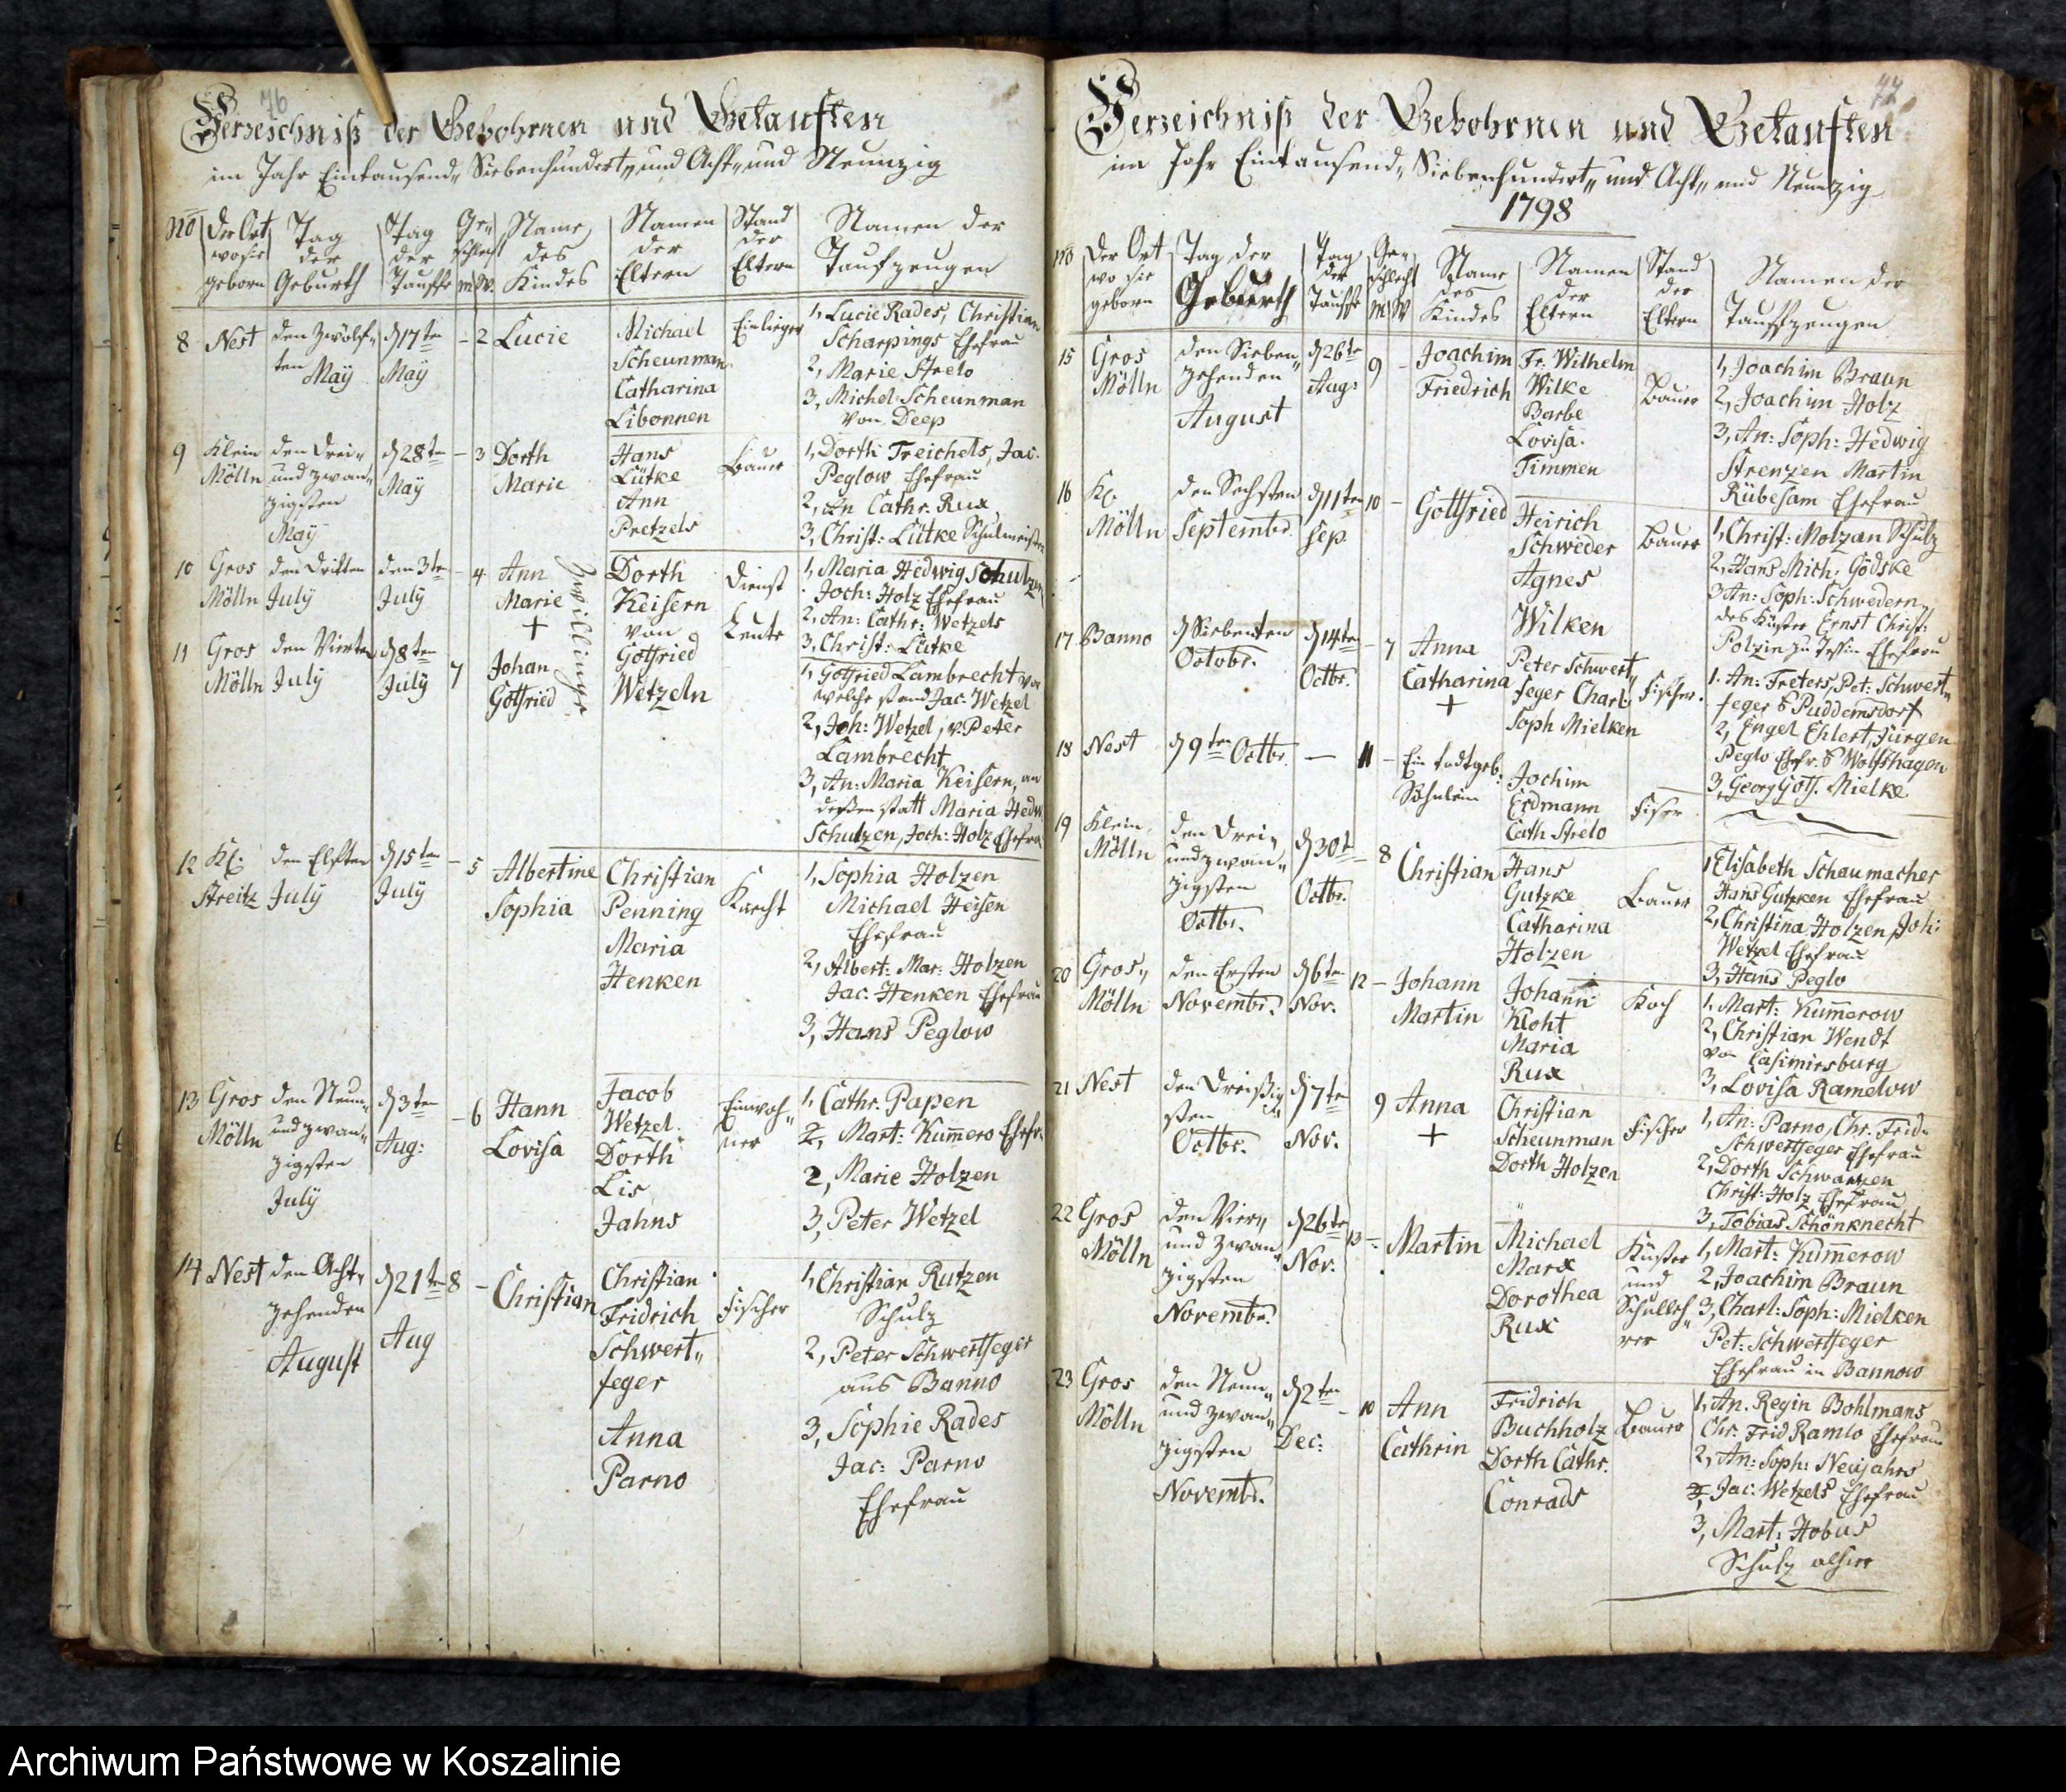 76
Verzeichniß der Gebohrnen und Getauften
im Jahr Eintausend„ Siebenhundert„ und Acht„ und Neunzig
No
Der Ort
wo sie
geborn
Tag
der
Geburth
Tag
der
Tauffe
Ge„
schlecht
M. W.
Name
des
Kindes
Namen
der
Eltern
Stand
der
Eltern
Namen der
Taufzeugen
8
Nest
den Zwölf„
ten
May
d 17ten
May
- 2
Lucie
Michael
Scheunman
Catharina
Libonnen
Einlieger
1, Lucie Rades, Christian
Scharpings Ehefrau
2, Marie Strelo
3, Michel Scheunman
von Deep
9
Klein
Mölln
den Drei„
und zwan„
zigsten
May
d 28ten
May
- 3
Dorth
Marie
Hans
Lütke
Ann
Pretzels
Bauer
1, Dorth: Treichels, Jac.
Peglow Ehefrau
2, An Cathr. Rux
3, Christ: Lütke Schulmeister
10
Gros
Mölln
den Dritten
July
den 3te
July
- 4
Ann
Marie
+
Zwillinge
Dorth
Keisern
von
Gotfried
Wetzeln
Dienst
Leute
1, Maria Hedwig Schulzen
Joch: Holz Ehefrau
2, An: Cathr: Wetzels
3, Christ: Lütke
11
Gros
Mölln
den Vierten
July
d 8ten
July
7
Johan
Gotfried
1, Gotfried Lambrecht vor
welche stand Jac: Wetzel
2, Joh: Wetzel, v. Peter
Lambrecht
3, An: Maria Keisern, an
deßen statt Maria Hedw.
Schulzen, Joch: Holz Ehefrau
12
Kl.
Streitz
den Elften
July
d 15ten
July
- 5
Albertine
Sophia
Christian
Penning
Maria
Henken
Knecht
1, Sophia Holzen
Michael Heisen
Ehefrau
2, Albert: Mar: Holzen
Jac: Henken Ehefrau
3, Hans Peglow
13
Gros
Mölln
den Neun„
und zwan„
zigsten
July
d 3ten
Aug:
- 6
Hann
Lovisa
Jacob
Wetzel
Dorth
Lis
Jahns
Einwoh„
ner
1, Cathr. Papen
2, Mart: Kummero Ehefr.
2, Marie Holzen
3, Peter Wetzel
14
Nest
den Acht„
zehenden
August
d 21ten
Aug
8 -
Christian
Christian
Fridrich
Schwert„
feger
Anna
Parno
Fischer
1, Christian Rutzen
Schulz
2, Peter Schwertfeger
aus Banno
3, Sophie Rades
Jac: Parno
Ehefrau
77
Verzeichniß der Gebohrnen und Getauften
im Jahr Eintausend„ Siebenhundert„ und Acht„ und Neunzig
1798
No
Der Ort
wo sie
geborn
Tag der
Geburth
Tag
der
Tauffe
Ge„
schlecht
M W
Name
des
Kindes
Namen
der
Eltern
Stand
der
Eltern
Namen der
Taufzeugen
15
Gros
Mölln
den Sieben„
zehenden
August
d 26te
Aug:
9 -
Joachim
Friedrich
Fr: Wilhelm
Wilke
Barbe
Lovisa
Timmen
Bauer
1, Joachim Braun
2, Joachim Holz
3, An: Soph: Hedwig
Strenzen Martin
Rübesam Ehefrau
16
Kl.
Mölln
den Sechsten
Septembr.
d 11ten
Sep.
10 -
Gottfried
Heirich
Schweder
Agnes
Wilken
Bauer
1, Christ: Molzan Schulz
2, Hans Mich: Gödske
3 An: Soph: Schwedern
des Küster Ernst Christ:
Polzin zu Tessin Ehefrau
17
Banno
d Siebenten
Octobr.
d 14ten
Octbr.
- 7
Anna
Catharina
+
Peter Schwert„
feger Charl:
Soph Mielken
Fischer.
1. An: Treters, Pet: Schwert„
feger E Puddemsdorf
2, Engel Ehlert, Jürgen
Peglo Ehefr. E Wolfshagen
3, Georg Gotf. Mielke
18
Nest
d 9ten Octbr.
—
11 -
Ein todtgeb:
Söhnlein
Jochim
Erdmann
Cath Strelo
Fiser
19
Klein
Mölln
den Drei„
und zwan„
zigsten
Octbr.
d 30t
Octbr.
- 8
Christian
Hans
Gutzke
Catharina
Holzen
Bauer
1 Elisabeth Schaumacher
Hans Gutzken Ehefrau
2, Christina Holzen, Joh:
Wetzel Ehefrau
3, Hans Peglo
20
Gros„
Mölln
den Ersten
Novembr.
d 6ten
Nov.
12 -
Johann
Martin
Johann
Kloht
Maria
Rux
Koch
1, Mart: Kummerow
2, Christian Wendt
von Casimirsburg
3, Lovisa Ramelow
21
Nest
den Dreißig„
sten
Octbr.
d 7te
Nov.
9
Anna
+
Christian
Scheunman
Dorth Holzen
Fischer
1, An: Parno, Chr. Frid„
Schwertfeger Ehefrau
2, Dorth Schwartzen
Christ: Holz Ehefrau
3, Tobias Schönknecht
22
Gros
Mölln
den Vier„
und zwan„
zigsten
Novembr.
d 26te
Nov.
13 -
Martin
Michael
Marx
Dorothea
Rux
Küster
und
Schulleh„
rer
1, Mart: Kummerow
2, Joachim Braun
3, Charl: Soph: Mielken
Pet: Schwertfeger
Ehefrau in Bannow
23
Gros
Mölln
den Neun„
und zwan„
zigsten
Novembr.
d 2ten
Dec:
- 10
Ann
Cathrin
Fridrich
Buchholz
Dorth Cathr.
Conrads
Bauer
1, An. Regin Bohlmans
Chr. Frid Ramlo Ehefrau
2, An: Soph: Neujahrs
Jac: Wetzels Ehefrau
3, Mart: Hobus
Schulz alhier
Archiwum Państwowe w Koszalinie